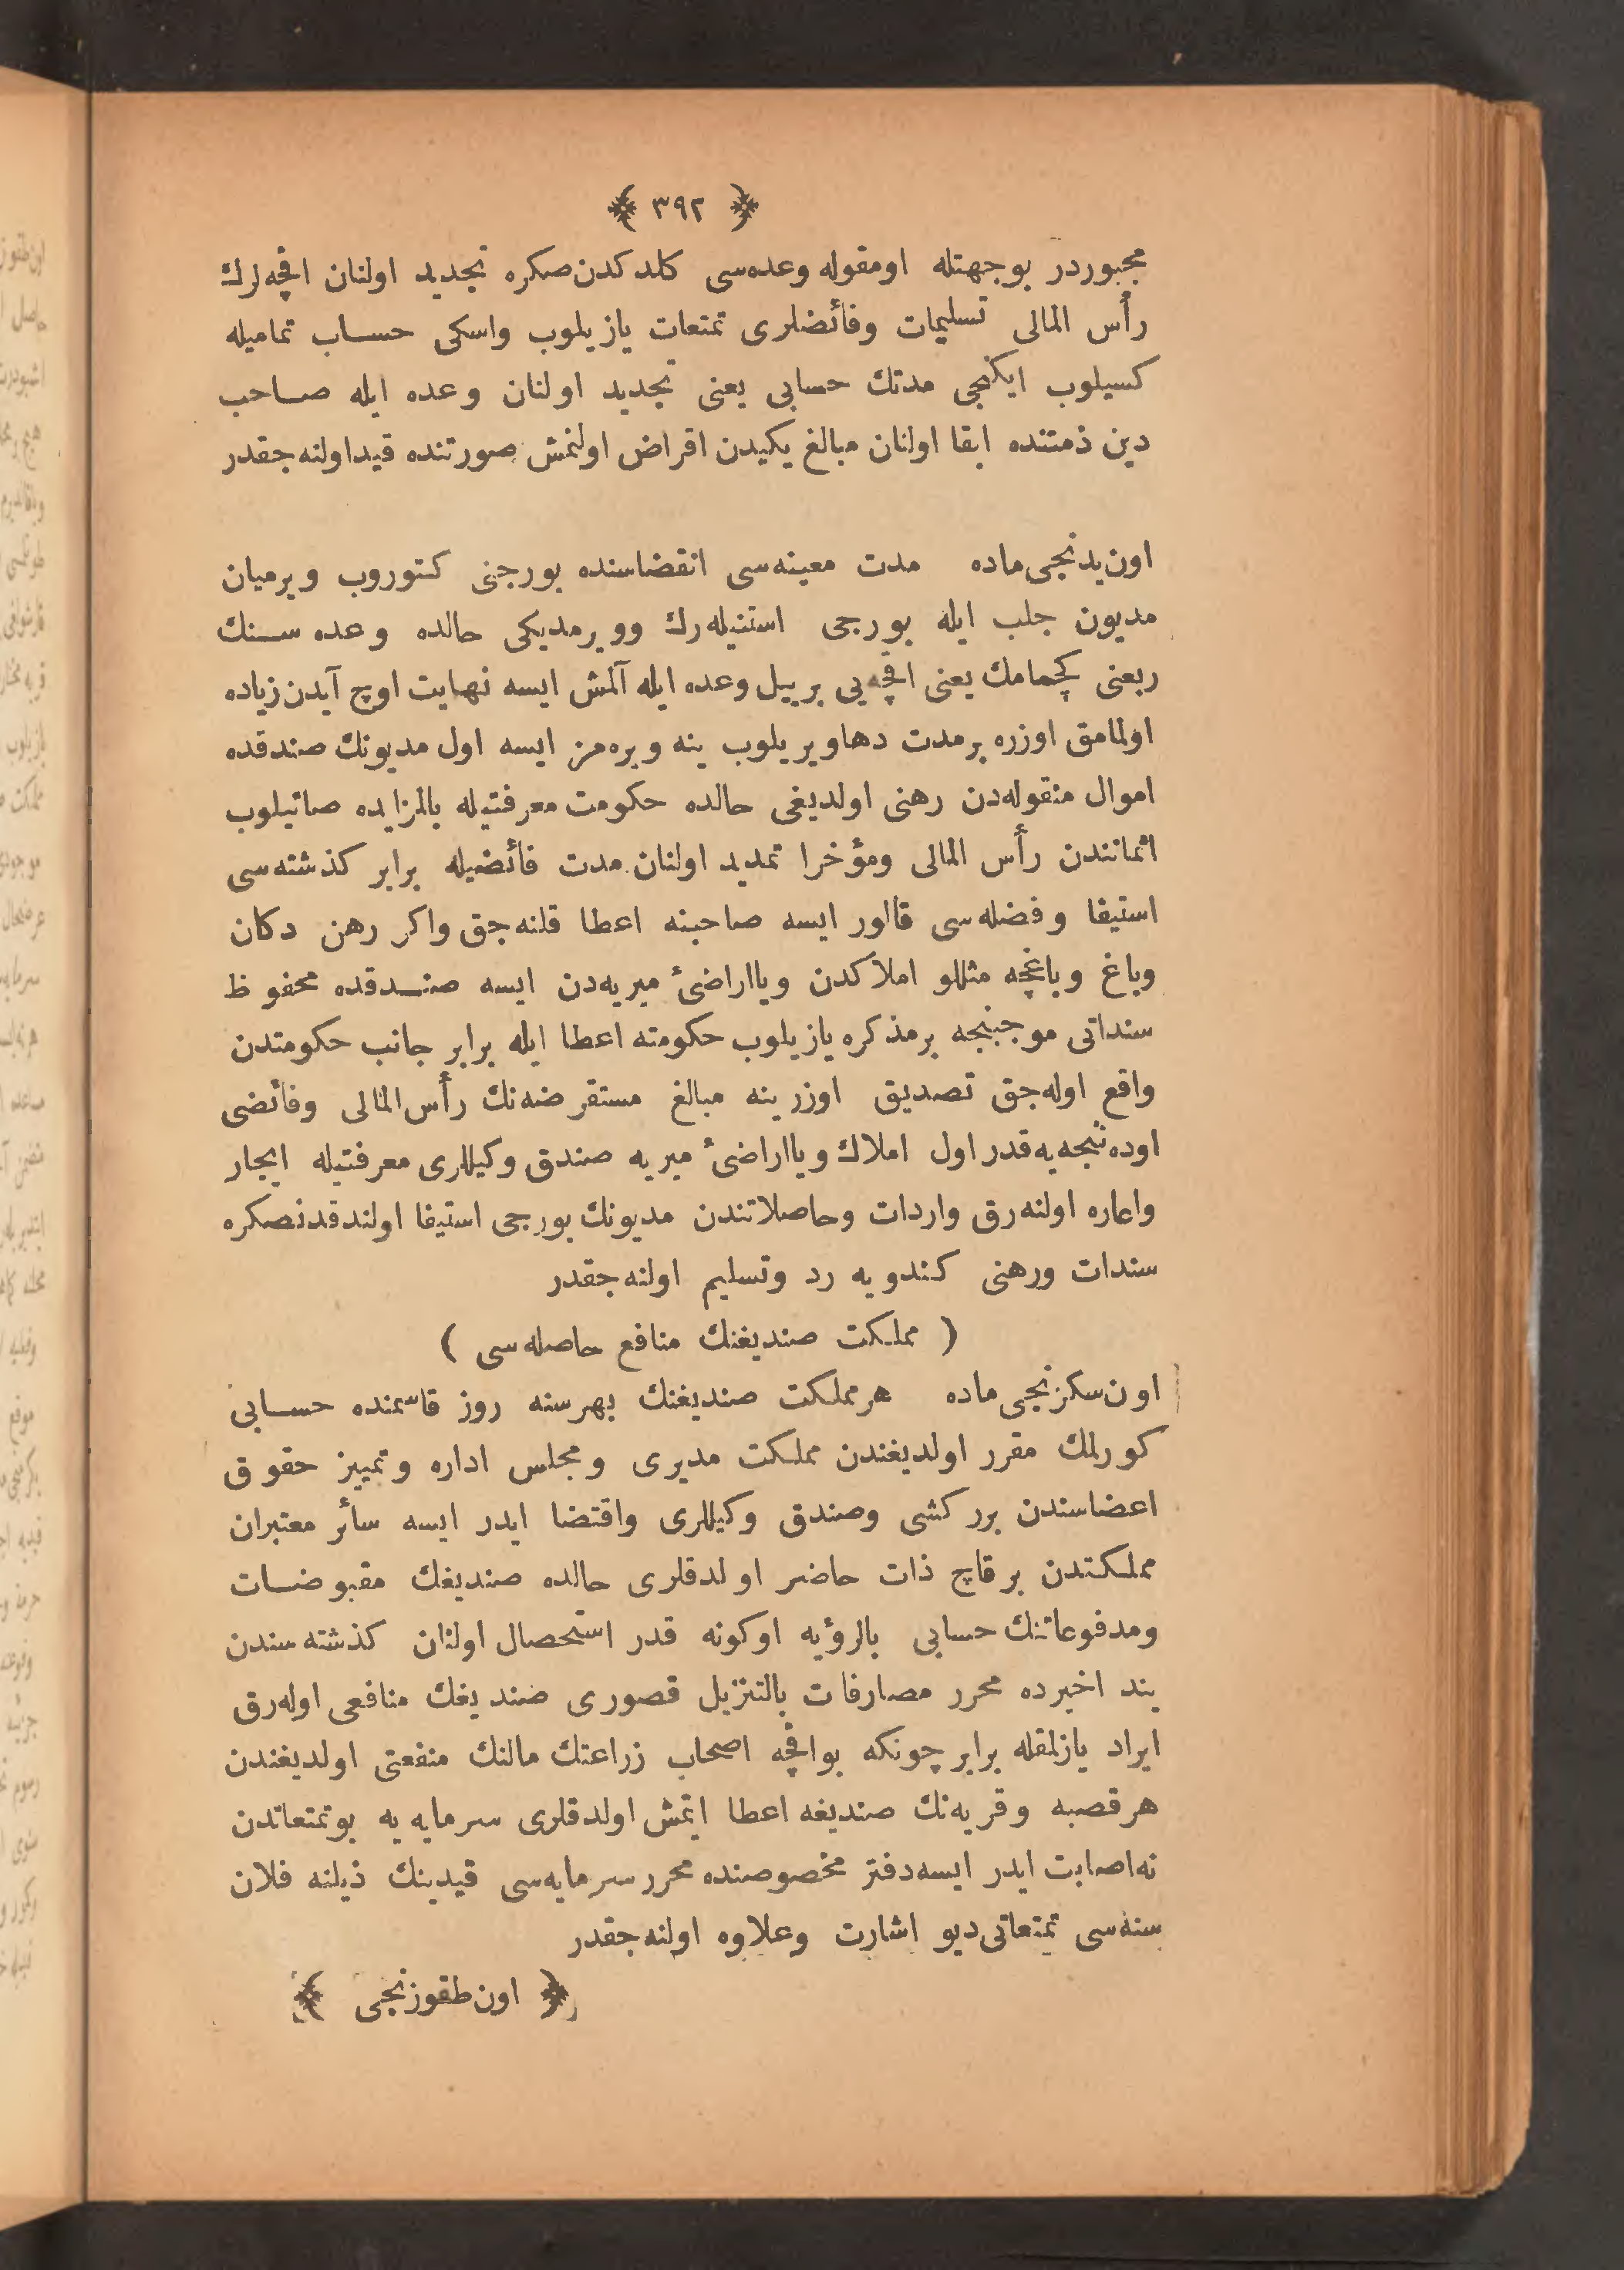 ﴿ ٣٩٢ ﴾
مجبوردر بوجهتله اومقوله وعده‌سی کلدکدن‌صکره تجدید اولنان اقچه‌لرك
رأس المالی تسلیمات وفائضلری تمتعات یازیلوب واسکی حساب تمامیله
کسیلوب ایکنجی مدتك حسابی یعنی تجدید اولنان وعده ایله صاحب
دین ذمتنده ابقا اولنان مبالغ یکیدن اقراض اولنمش صورتنده قیداولنه‌جقدر
اون‌یدنجی‌ماده مدت معینه‌سی انقضاسنده بورجنی کتوروب ویرمیان
مدیون جلب ایله بورجی استنیله‌رك وویرمدیکی حالده وعده سنك
ربعنی کچمامك یعنی اقچه‌یی بریبل وعده ایله آلمش ایسه نهایت اوچ آیدن‌زیاده
اولمامق اوزره برمدت دهاویریلوب ینه ویره‌مز ایسه اول مدیونك صندقده
اموال منقوله‌دن رهنی اولدیغی حالده حکومت معرفتیله بالمزایده صاتیلوب
اثمانندن رأس المالی ومؤخرا تمدید اولنان مدت فائضیله برابر کذشته‌سی
استیفا وفضله‌سی قالور ایسه صاحبنه اعطا قلنه‌جق واکر رهن دکان
وباغ وباغچه مثللو املاکدن ویااراضیٔ میریه‌دن ایسه صندقده محفوظ
سنداتی موجبنجه برمذکره یازیلوب حکومته اعطا ایله برابر جانب حکومتدن
واقع اوله‌جق تصدیق اوزرینه مبالغ مستقرضه‌نك رأس‌المالی وفائضی
اوده‌ننجه‌یه‌قدر اول املاك ویااراضیٔ میریه صندق وکیللری معرفتیله ایجار
واعاره اولنه‌رق واردات وحاصلاتندن مدیونك بورجی استیفا اولندقدنصکره
سندات ورهنی کندویه رد وتسلیم اولنه‌جقدر
( مملکت صندیغنك منافع حاصله‌سی )
اون‌سکزنجی‌ماده هرمملکت صندیغنك بهرسنه روز قاسمنده حسابی
کورلمك مقرر اولدیغندن مملکت مدیری ومجلس اداره وتمییز حقوق
اعضاسندن برر کشی وصندق وکیللری واقتضا ایدر ایسه سائر معتبران
مملکتدن برقاچ ذات حاضر اولدقلری حالده صندیغك مقبوضات
ومدفوعاتنك حسابی بالرؤیه اوکونه قدر استحصال اولنان کذشته‌سندن
بند اخیرده محرر مصارفات بالتنزیل قصوری صندیغك منافعی اوله‌رق
ایراد یازلمقله برابر چونکه بواقچه اصحاب زراعتك مالنك منفعتی اولدیغندن
هرقصبه وقریه‌نك صندیغه اعطا ایتمش اولدقلری سرمایه‌یه بوتمتعاتدن
نه‌اصابت ایدر ایسه‌دفتر مخصوصنده محرر سرمایه‌سی قیدینك ذیلنه فلان
سنه‌سی تمتعاتی‌دیو اشارت وعلاوه اولنه‌جقدر
﴿ اون‌طقوزنجی ﴾